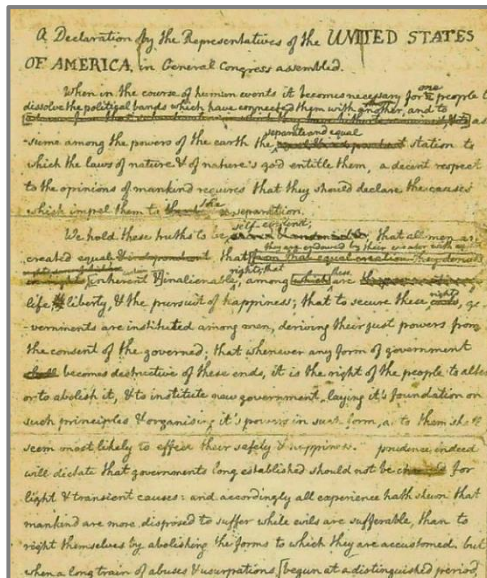 A Declaration by the Representatives of the UNITED STATES
OF AMERICA, in General Congress assembled.
When in the course of human events it becomes necessary for one people
dissolve the political bands which have connected them with another, and to
as
separate and equal
sume among the powers of the earth the station to
which the laws of nature & of nature's god entitle them, a decent respect
to the opinions of mankind requires that they should declare the causes
which impel them to the separation.
self-evident;
We hold these truths to be that all men are
they are endowed by their creator with
created equal & independent, that from that equal creation they derive
rights; that these
inherent & inalienable, among which are
rights
life, liberty, & the pursuit of happiness; that to secure these ends, go
vernments are instituted among men, deriving their just powers from
the consent of the governed; that whenever any form of government
shall becomes destructive of these ends, it is the right of the people to alter
or to abolish it, & to institute new government, laying it's foundation on
such principles & organising it's powers in such form, as to them shall
seem most likely to effect their safety & happiness. prudence indeed
will dictate that governments long established should not be changed for
light & transient causes: and accordingly all experience hath shewn that
mankind are more disposed to suffer while evils are sufferable, than to
right themselves by abolishing the forms to which they are accustomed. but
when a long train of abuses & usurpations, [begun at a distinguished period,